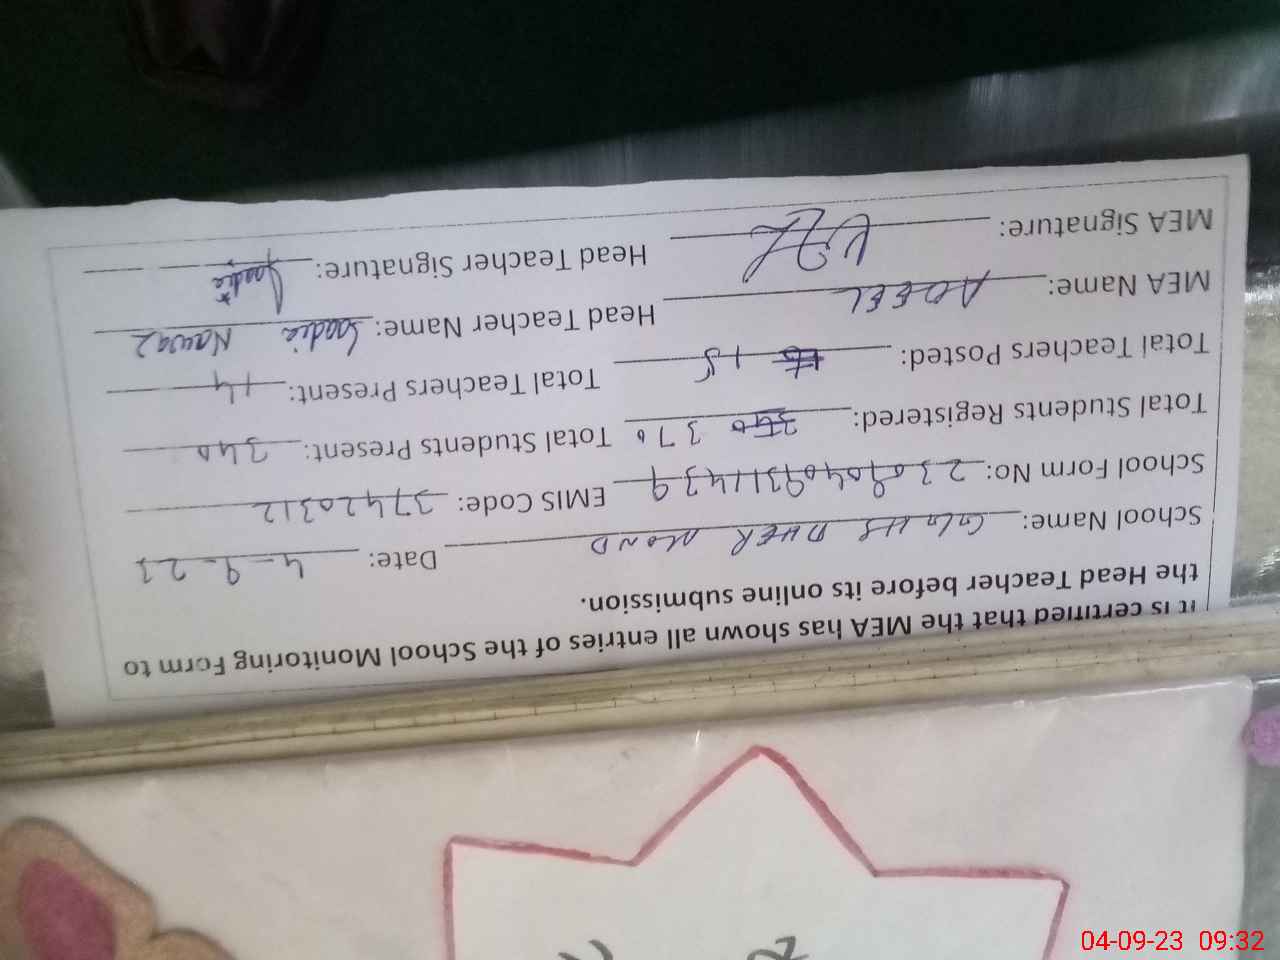 It is certified that the MEA has shown all entries of the School Monitoring Form to
the Head Teacher before its online submission.
School Name: GGHS DHER MOND Date: 4-9-23
School Form No: 23090409311439 EMIS Code: 37420312
Total Students Registered: 370 Total Students Present: 340
Total Teachers Posted: 15 Total Teachers Present: 14
MEA Name: ADEEL Head Teacher Name: Saadia Nawaz
MEA Signature: Head Teacher Signature: Saadia
04-09-23 09:32